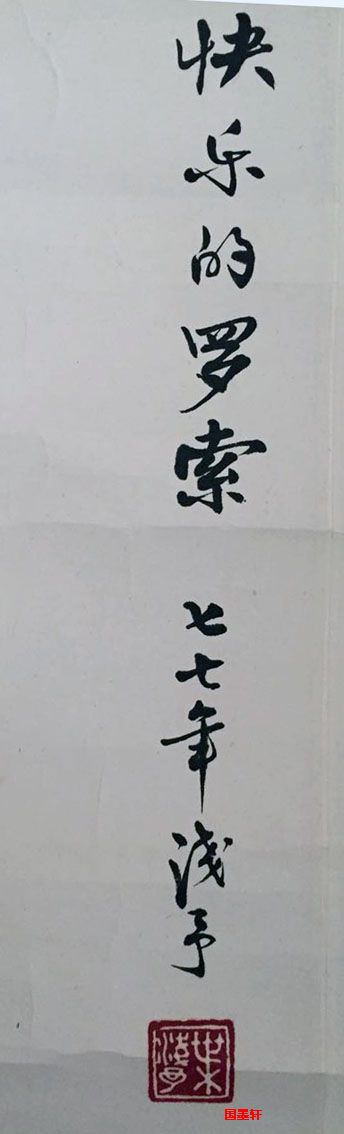 快乐的罗索 七七年浅予
葉浅予
国墨轩